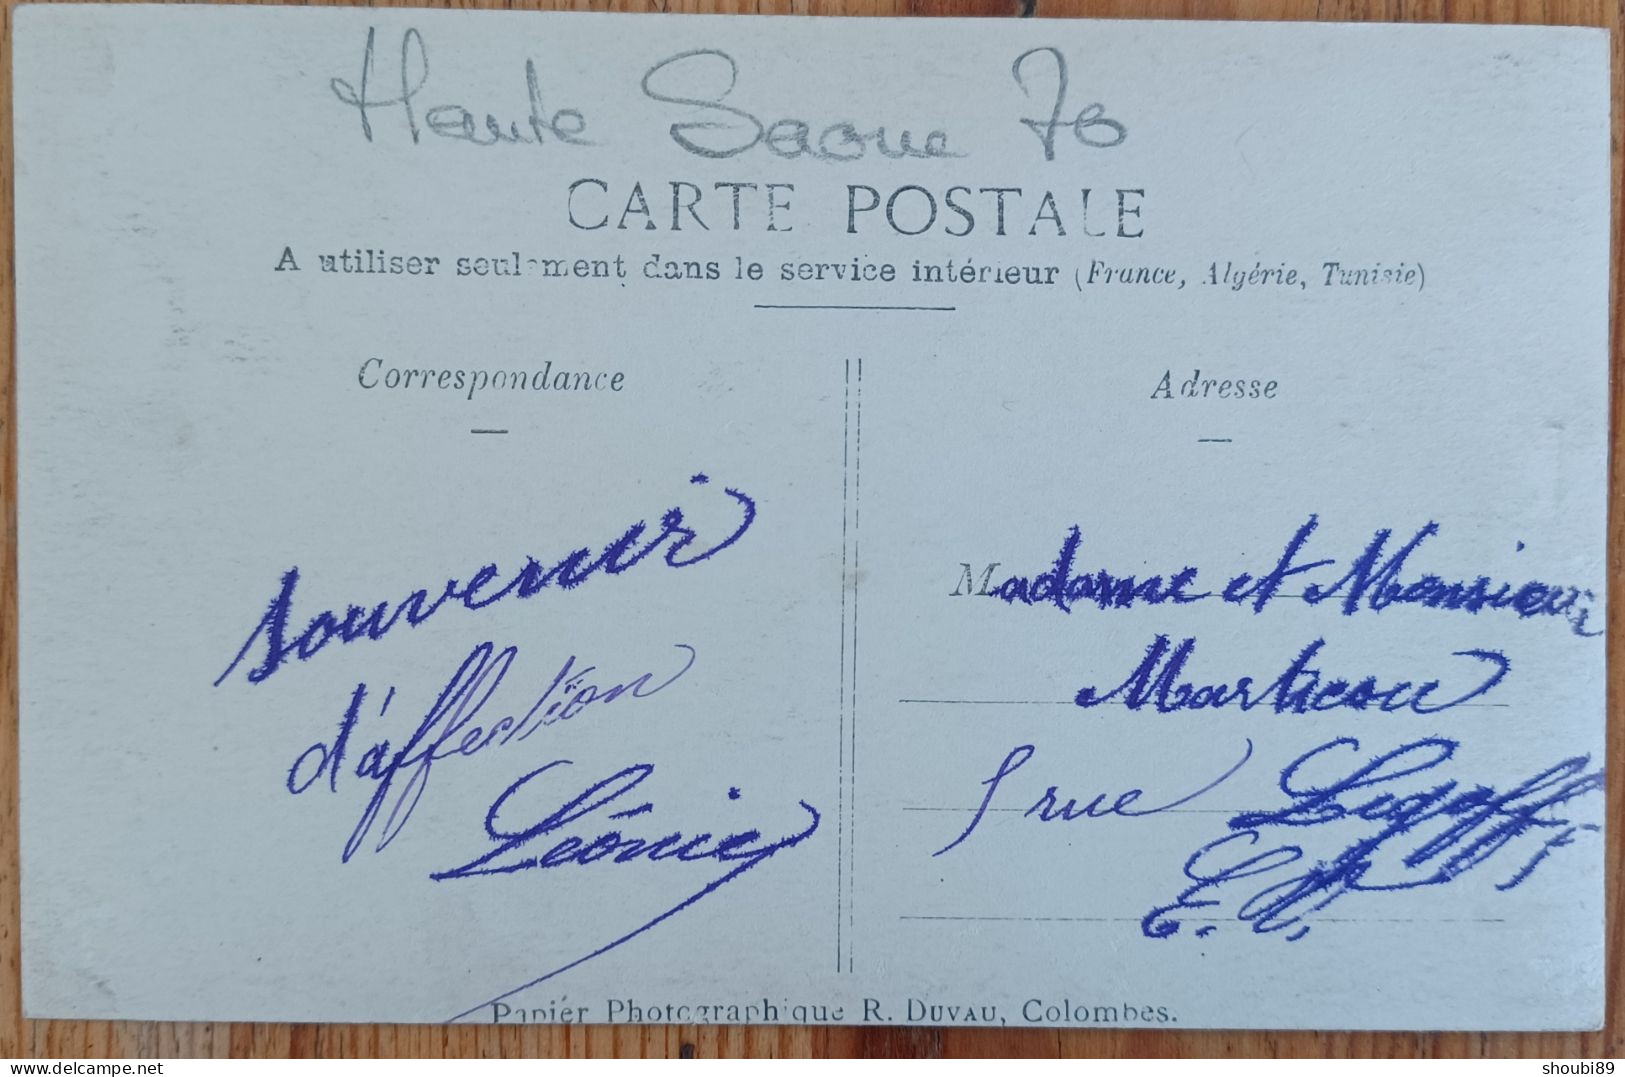 Haute Saone 70
CARTE POSTALE
A utiliser seulement dans le service intérieur (France, Algérie, Tunisie)
Correspondance
Adresse
souvenir
d'affection
Léonie
Madame et Monsieur
rue
Papier Photographique R. DUVAU, Colombes.
shoubi89